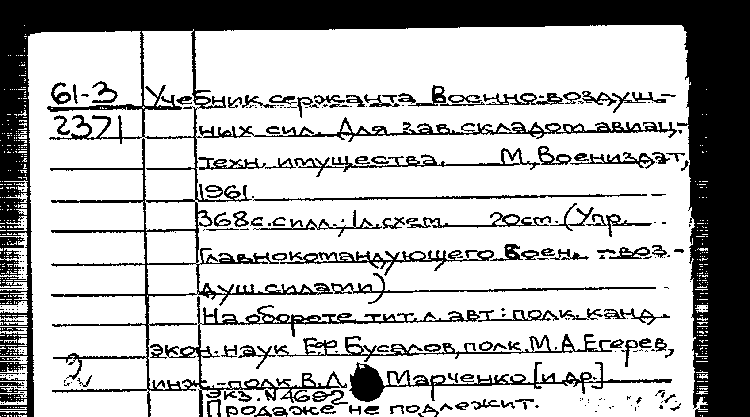 61-3 Учебник сержанта Военно-воздуш-
2371 ных сил. Для зав. складом авиац.-
техн. имущества. М., Воениздат,
1961.
368с. с илл.; 1л. схем. 20см. (Упр.
Главнокомандующего Воен. -воз-
душ. силами)
На обороте тит. л. авт: полк. канд.
экон. наук Е.Ф. Бусалов, полк. М.А. Егорев,
2 инж.-полк. В.Л. Марченко [и др.]
экз. N4692
Продаже не подлежит.